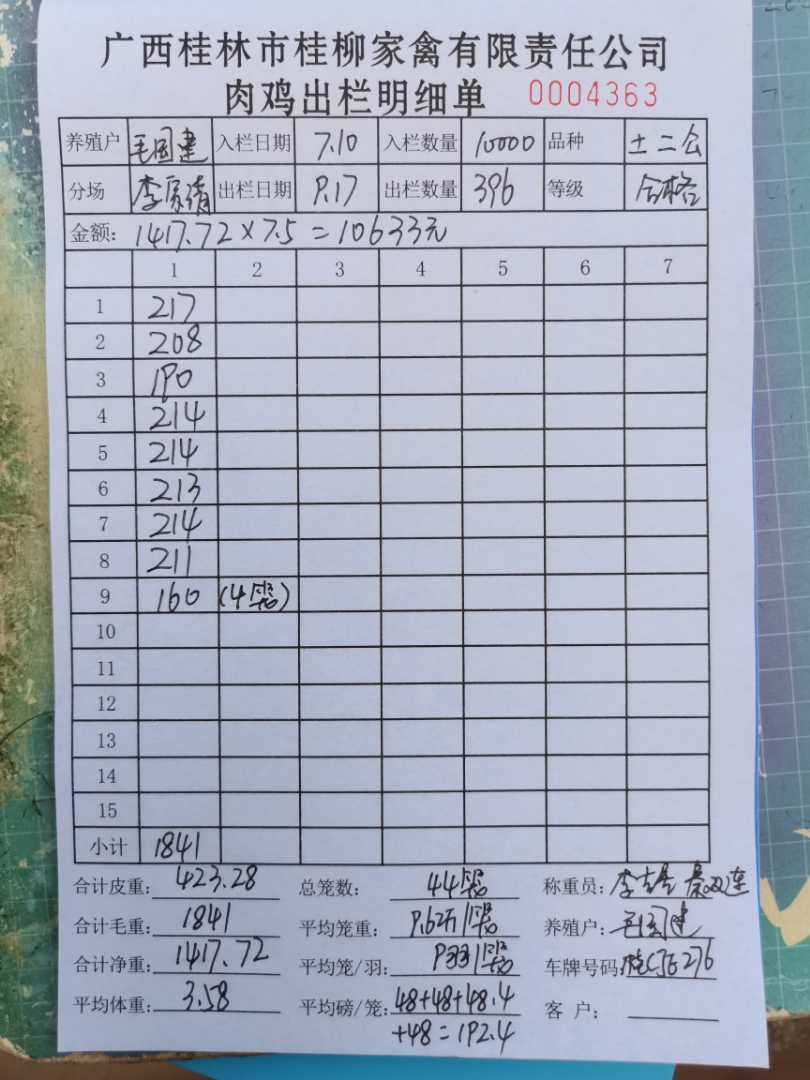 广西桂林市桂柳家禽有限责任公司
肉鸡出栏明细单 0004363
养殖户 毛国建 入栏日期 7.10 入栏数量 10000 品种 土二公
分场 出栏日期 9.17 出栏数量 396 等级 合格
金额: 1417.72×7.5=10633元
1 2 3 4 5 6 7
1 217
2 208
3 190
4 214
5 214
6 213
7 214
8 211
9 160 (4笼)
10
11
12
13
14
15
小计 1841
合计皮重: 423.28 总笼数: 44笼 称重员:
合计毛重: 1841 平均笼重: 9.62斤/笼 养殖户: 毛国建
合计净重: 1417.72 平均笼/羽: 9羽/笼 车牌号码: 桂CJ5276
平均体重: 3.58 平均磅/笼: 48+48+48.4
+48=192.4 客户: